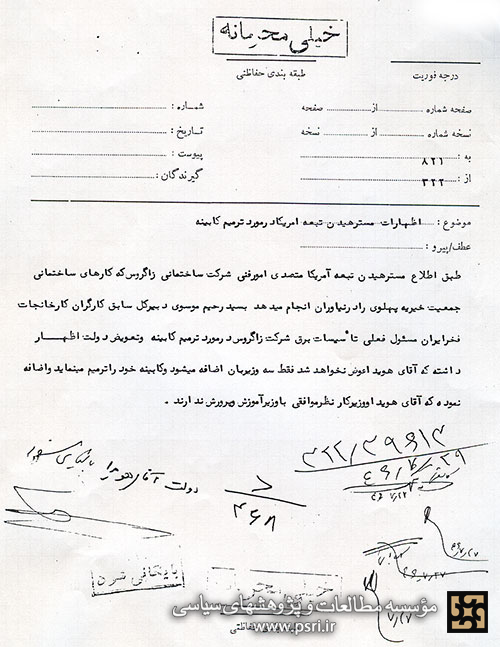 خیلی محرمانه
طبقه بندی حفاظتی
درجه فوریت
صفحه شماره .......... از .......... صفحه
شماره :
نسخه شماره .......... از .......... نسخه
تاریخ :
به : ۸۲۱
پیوست :
از : ۳۲۲
گیرندگان :
موضوع : اظهارات مسترهیدن تبعه امریکا درمورد ترمیم کابینه
عطف/پیرو :
طبق اطلاع مسترهیدن تبعه آمریکا متصدی امورفنی شرکت ساختمانی زاگروس که کارهای ساختمانی
جمعیت خیریه پهلوی رادرنیاوران انجام میدهد بسید رحیم موسوی دبیرکل سابق کارگران کارخانجات
فخرایران مسئول فعلی تأسیسات برق شرکت زاگروس درمورد ترمیم کابینه وتعویض دولت اظهار
داشته که آقای هویدا عوض نخواهد شد فقط سه وزیربان اضافه میشود وکابینه خود راترمیم مینماید واضافه
نموده که آقای هویدا ووزیرکار نظرموافقی باوزیرآموزش وپرورش ندارند .
۳۲۲/۳۹۶۱۳
دولت آقای هویدا
بایگانی شود
۴۶/۷/۲۹
۴۶/۷/۲۷
بایگانی شد
خیلی محرمانه
مؤسسه مطالعات و پژوهشهای سیاسی
www.psri.ir